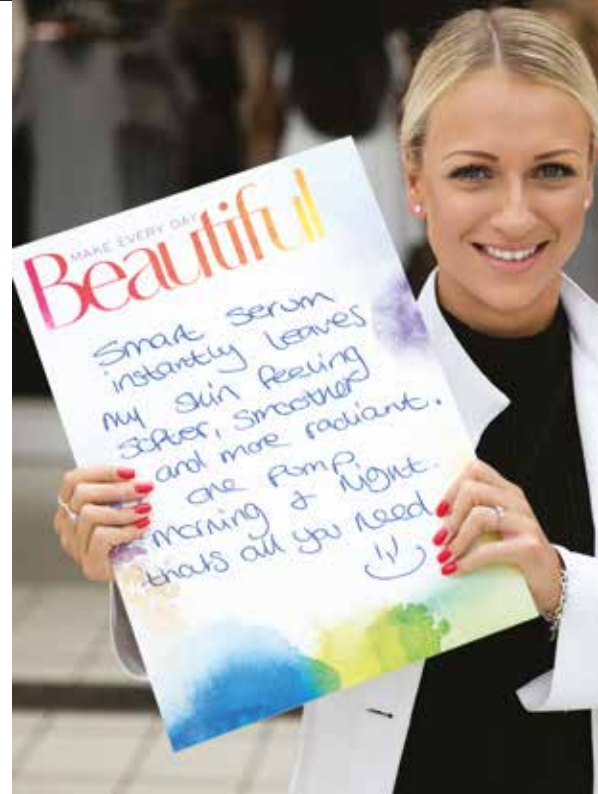 MAKE EVERY DAY
Beautiful
Smart Serum
instantly leaves
my skin feeling
softer, smoother
and more radiant.
one pump
morning & night.
thats all you need